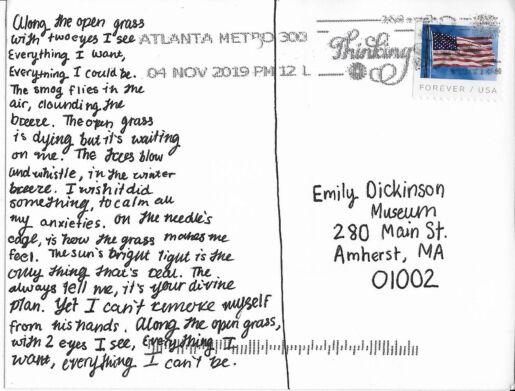 Along the open grass
with two eyes I see
Everything I want,
Everything I could be.
The smog flies in the
air, clounding the
breeze. The open grass
is dying but it's waiting
on me. The trees blow
and whistle, in the winter
breeze. I wish it did
something, to calm all
my anxieties. On the needle's
edge, is how the grass makes me
feel. The sun's bright light is the
only thing that's real. The
always tell me, it's your divine
plan. Yet I can't remove myself
from his hands. Along the open grass,
with 2 eyes I see, everything I
want, everything I can't be.
ATLANTA METRO 303
04 NOV 2019 PM 12 L
Thinking
FOREVER / USA
Emily Dickinson
Museum
280 Main St.
Amherst, MA
01002